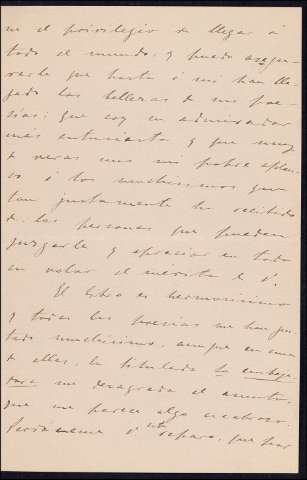 ne el privilegio de llegar á
todo el mundo, y puedo asegu-
rarle que hasta á mí han lle-
gado las bellezas de sus poe-
sías; que soy su admirador
más entusiasta y que muy
de veras uno mi pobre aplau-
so á los muchísimos que
tan justamente ha recibido
de las personas que pueden
juzgarle y apreciar en todo
su valor el mérito de V.
El libro es hermosísimo
y todas las poesías me han gus-
tado muchísimo, aunque en una
de ellas, la titulada La
me desagrada el asunto,
que me parece algo escabroso.
Perdóneme V. este reparo, que por